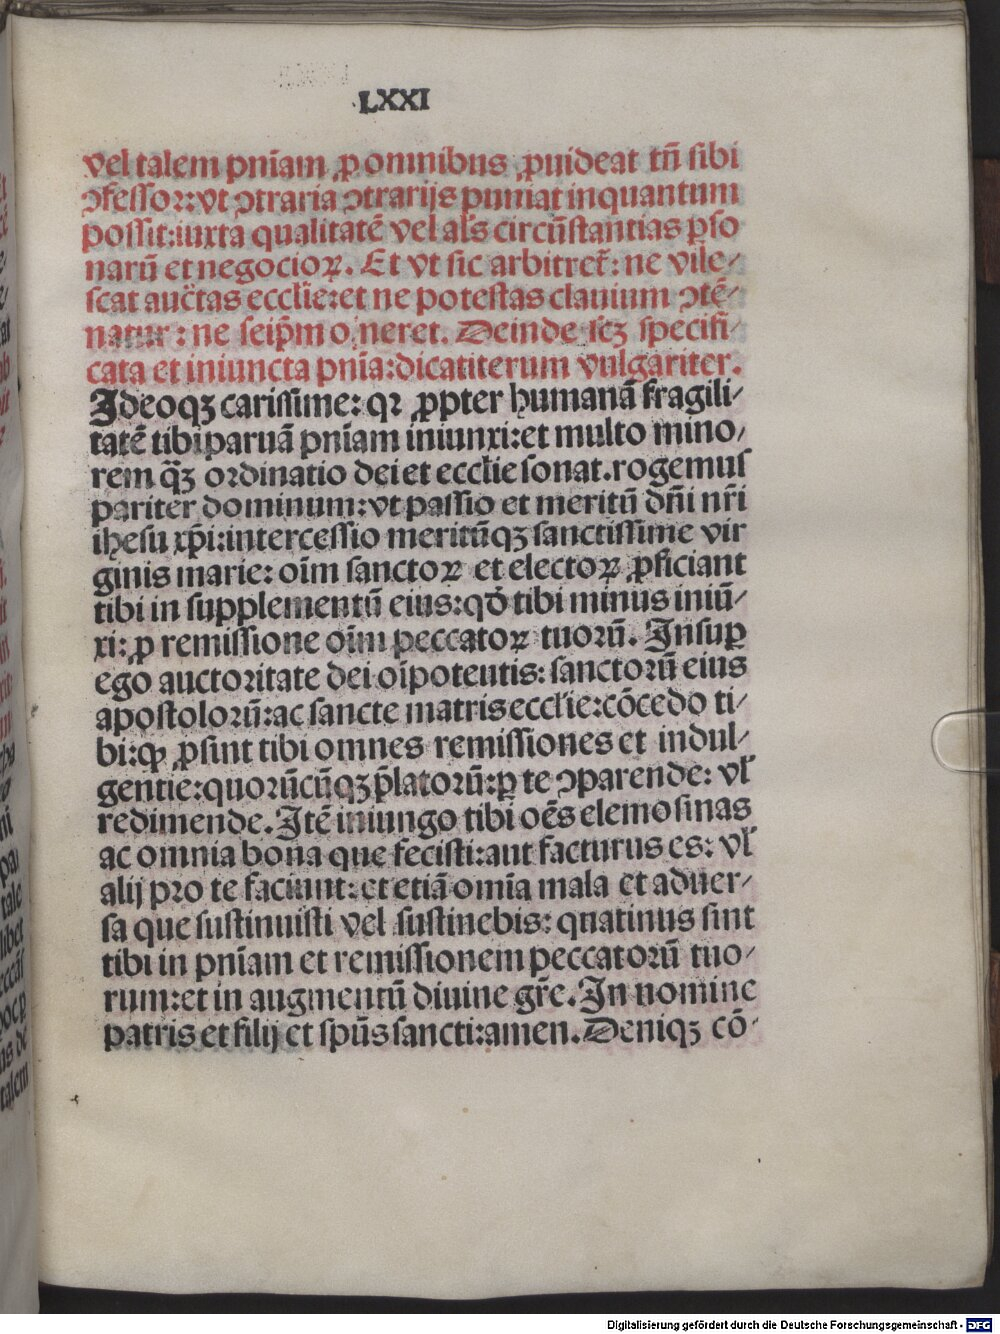 LXXI
vel talem pnīam ꝓ omnibus ꝓuideat tn̄ sibi
ↄfessor: vt ↄtraria ↄtrarijs puniat inquantum
possit: iuxta qualitatē vel als̄ circūstantias ꝑso
narū et negocioꝝ. Et vt sic arbitret᷑: ne vile⸗
scat auc̄tas ecclie: et ne potestas clauium ↄtē⸗
natur: ne seip̄m oneret. Deinde scꝫ specifi⸗
cata et iniuncta pnīa: dicat iterum vulgariter.
Ideoqꝫ carissime: qꝛ ꝓpter humanā fragili⸗
tatē tibi paruā pnīam iniunxi: et multo mino⸗
rem qͣꝫ ordinatio dei et ecclie sonat. rogemus
pariter dominum: vt passio et meritū dn̄i nr̄i
ihesu xp̄i: intercessio meritūqꝫ sanctissime vir
ginis marie: oīm sanctoꝝ et electoꝝ ꝓficiant
tibi in supplementū eius: qd̄ tibi minus iniū⸗
xi: ꝓ remissione oīm peccatoꝝ tuorū. Insuꝑ
ego auctoritate dei oīpotentis: sanctorū eius
apostolorū: ac sancte matris ecclie: cōcedo ti⸗
bi: ꝙ ꝓsint tibi omnes remissiones et indul⸗
gentie: quorūcūqꝫ p̄latorū: ꝑ te ↄparende: vl̄
redimende. Itē iniungo tibi oēs elemosinas
ac omnia bona que fecisti: aut facturus es: vl̄
alij pro te faciunt: et etiā omīa mala et aduer⸗
sa que sustinuisti vel sustinebis: quatinus sint
tibi in pnīam et remissionem peccatorū tuo⸗
rum: et in augmentū diuine gr̄e. In nomine
patris et filij et sp̄us sancti: amen. Deniqꝫ cō⸗
Digitalisierung gefördert durch die Deutsche Forschungsgemeinschaft - DFG